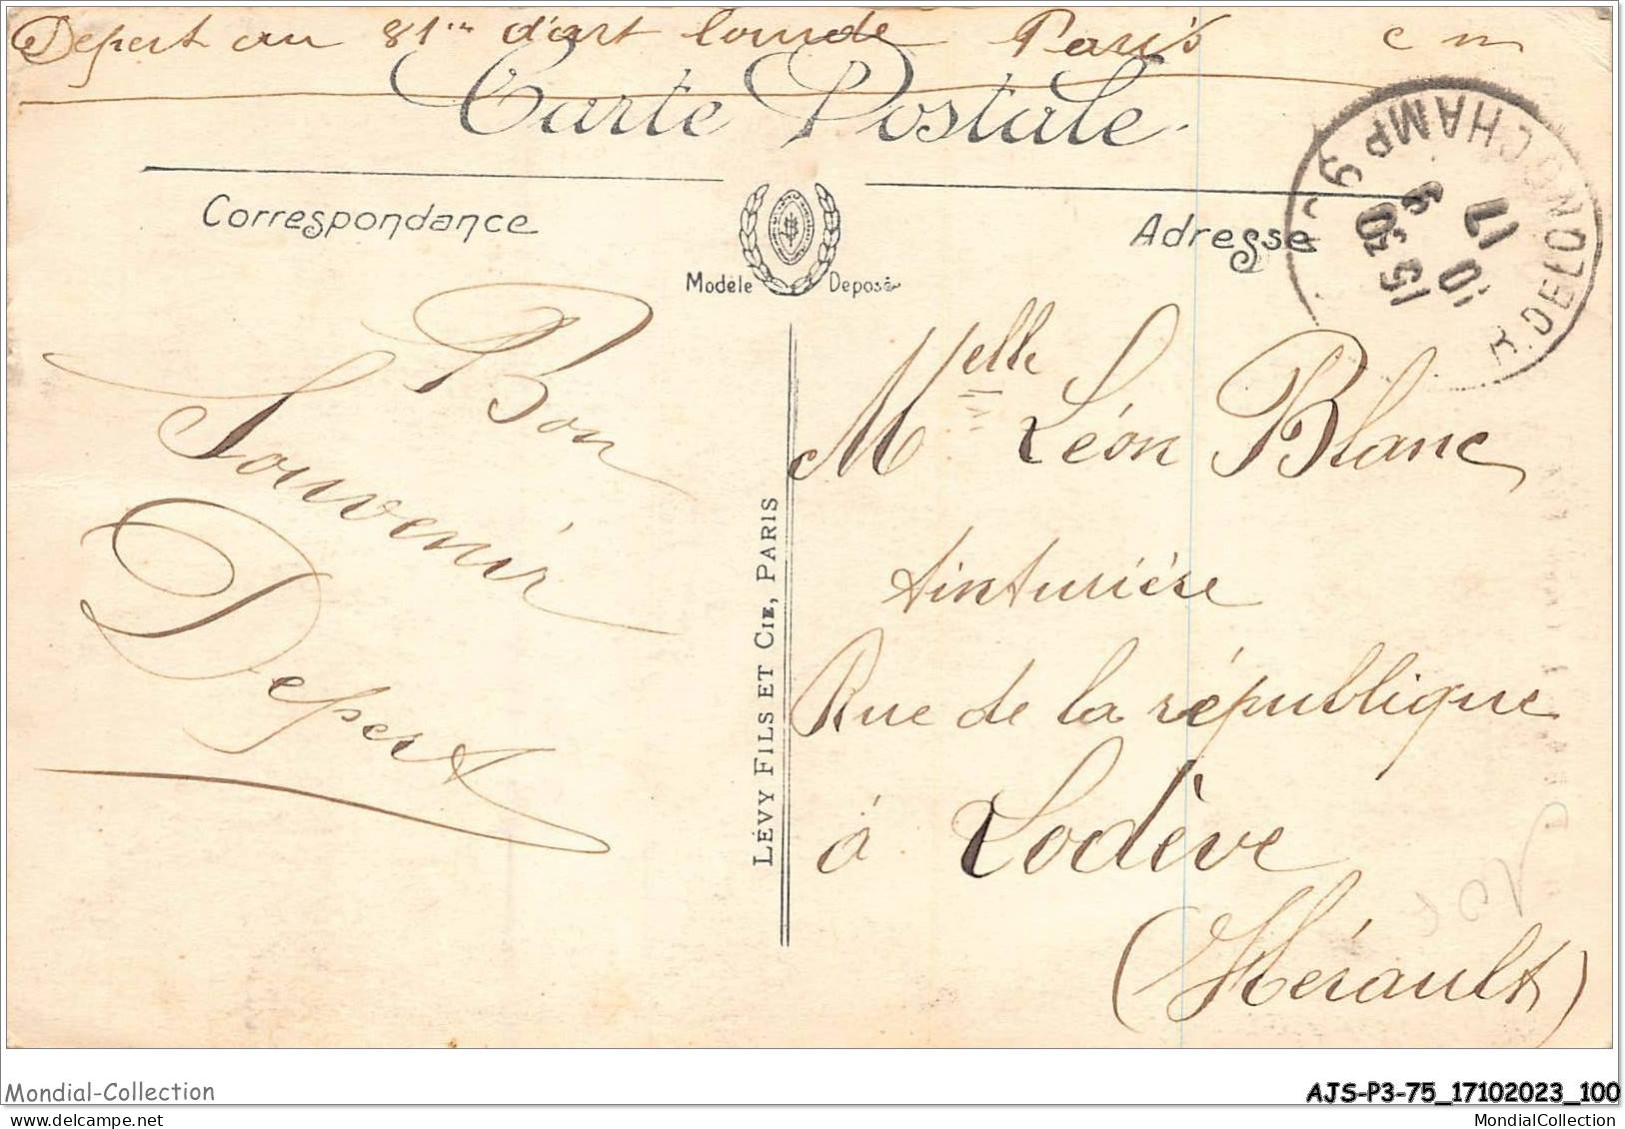 Depert au 81me d'art lourde Paris c m
Carte Postale
Correspondance
Adresse
Modèle Déposé
R. DE LONGCHAMP
15 30
9
10
17
Bon
Souvenir
Depert
LÉVY FILS ET CIE, PARIS
Melle Léon Blanc
tinturière
Rue de la république
à Lodève
(Hérault)
Mondial-Collection
AJS-P3-75_17102023_100
MondialCollection